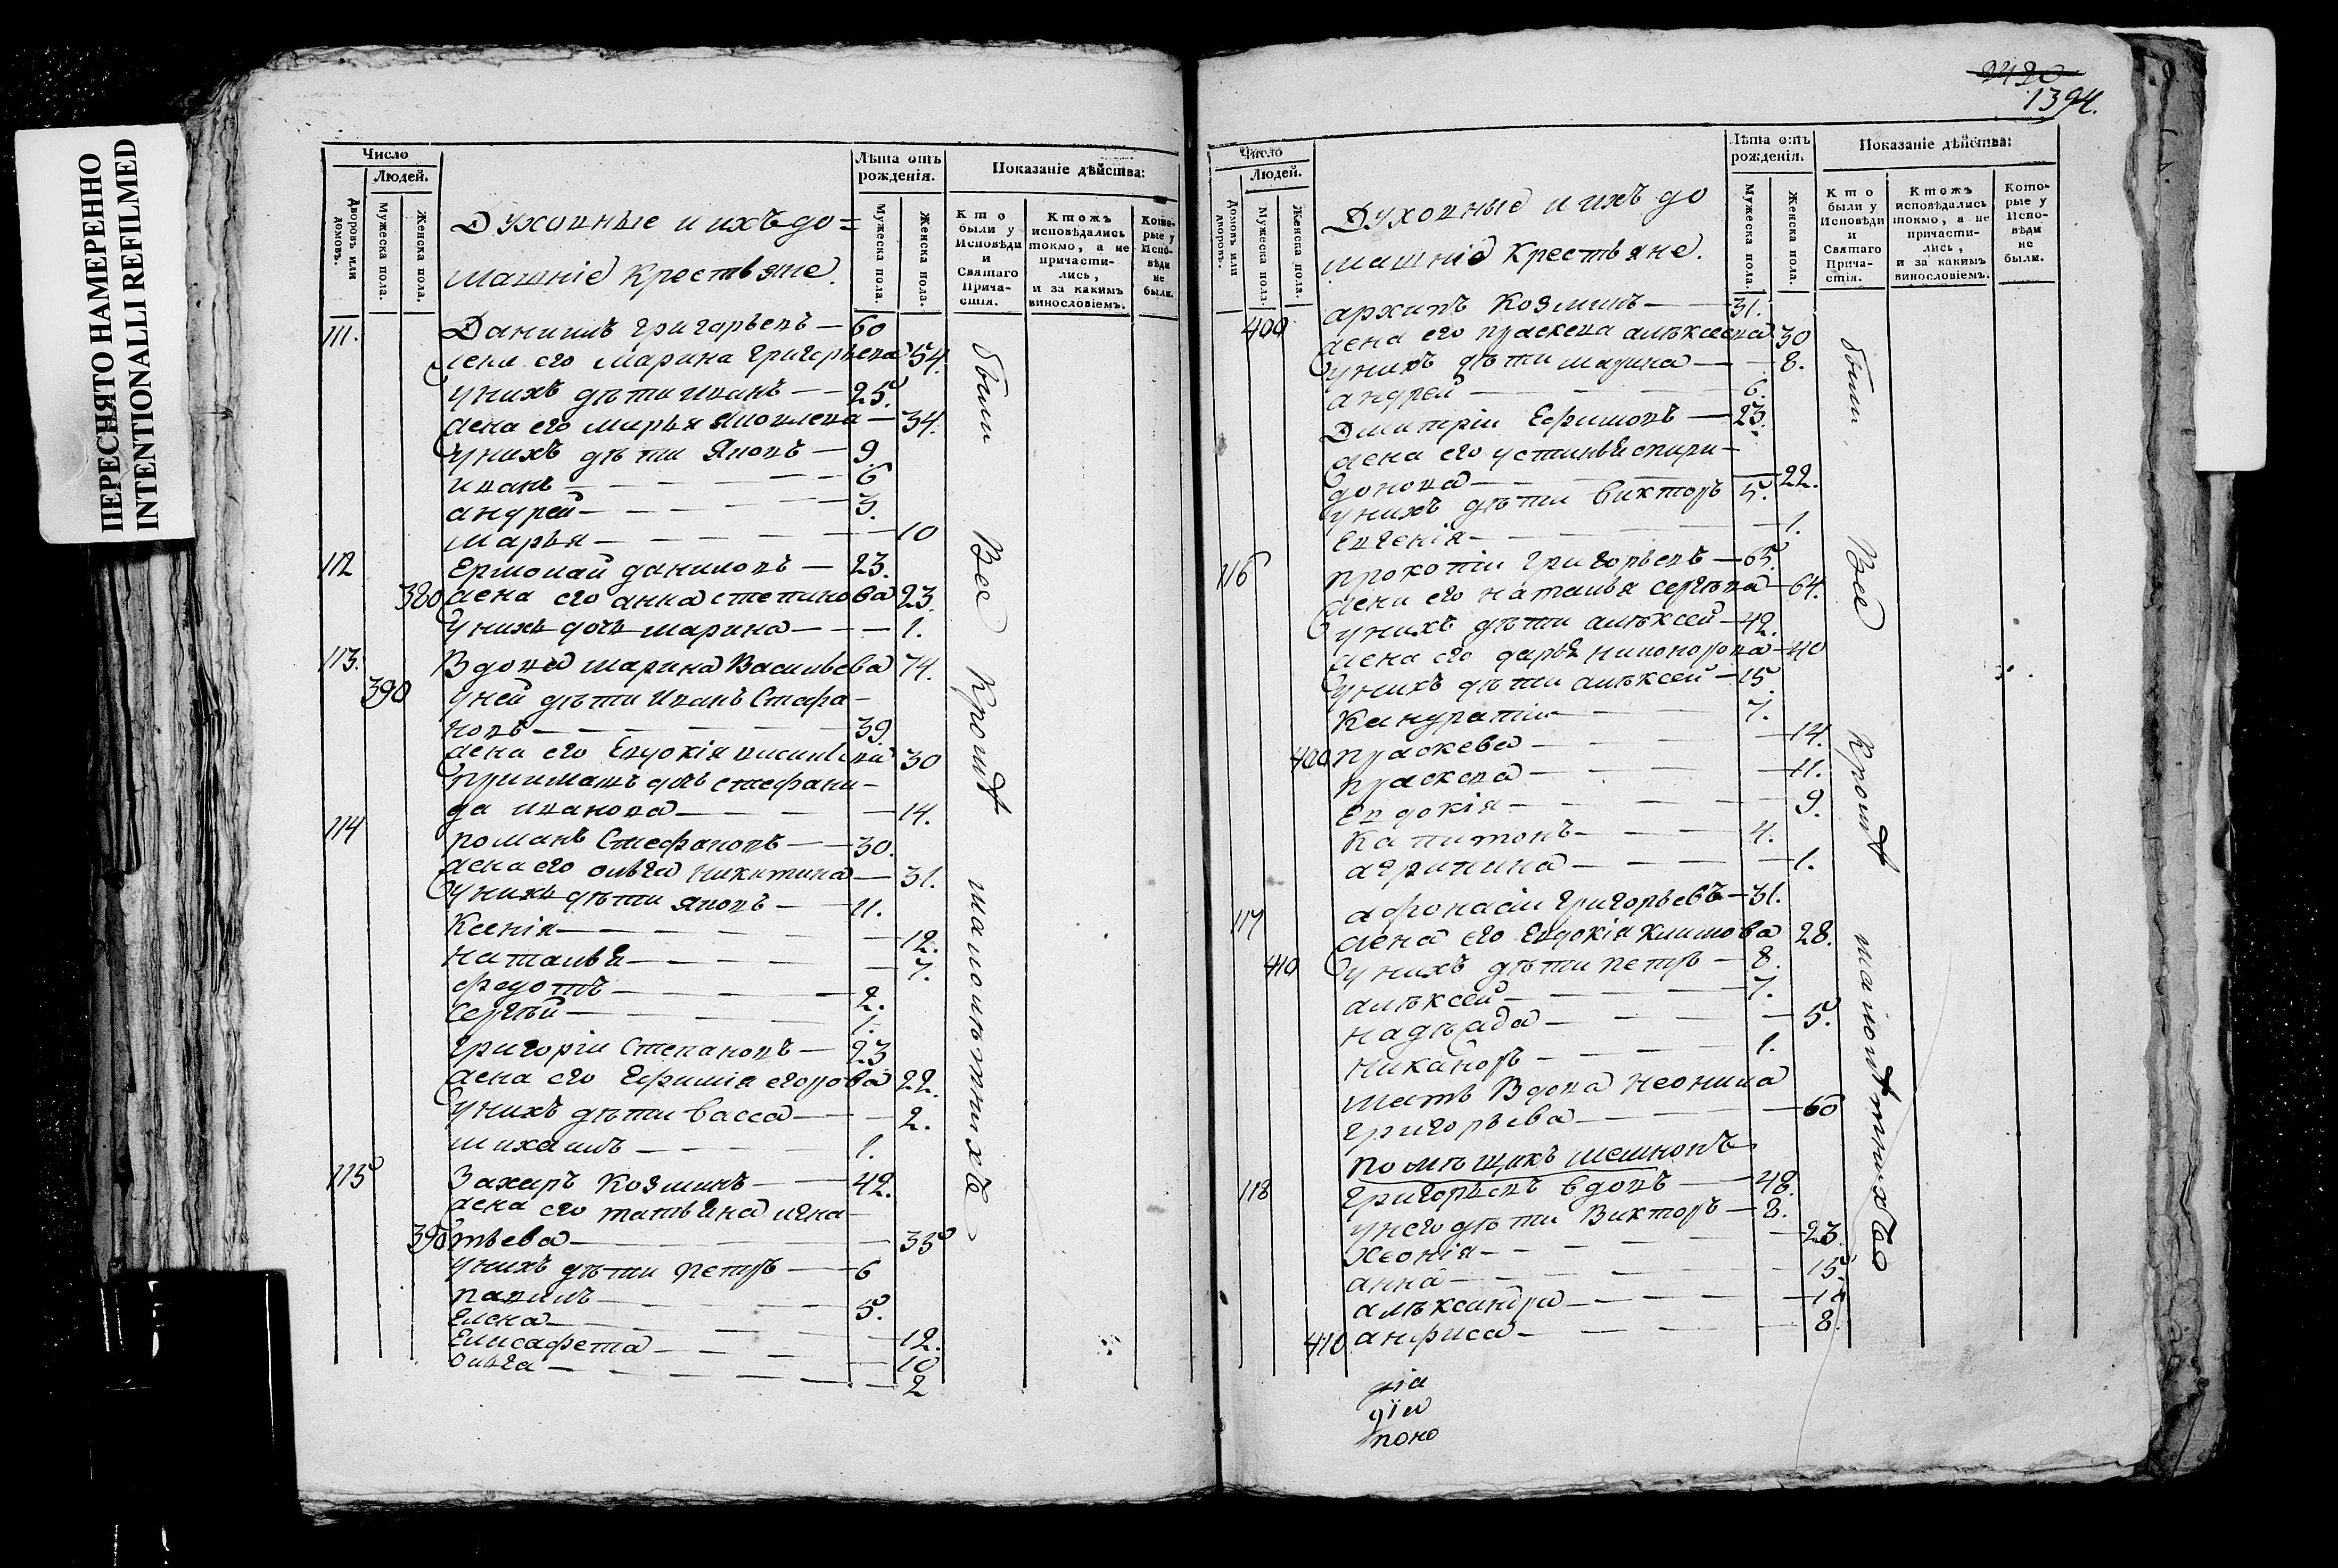 ПЕРЕСНЯТО НАМЕРЕННО
INTENTIONALLI REFILMED
Число
Людей.
Дворовъ или домовъ.
Мужеска пола.
Женска пола.
Духовные и ихъ до=
машніе крестьяне.
Лѣта отъ рожденія.
Мужеска пола.
Женска пола.
Показаніе дѣйства:
Кто были у Исповѣди и Святаго Прича-стія.
Ктожъ исповѣдались токмо, а не причасти-лись, и за какимъ винословіемъ.
Кото-рые у Испо-вѣди не были.
111. Данишъ Григорьевъ — 60
жена его Марина Григорьева 54.
у нихъ дѣти Иванъ — 25.
жена его Марья Яковлева — 34.
у нихъ дѣти Яковъ — 9
Иванъ — 6
Андрей — 3.
Марья — 10
112 Ермолай Даниловъ — 23.
380 жена его Анна Степанова 23.
у нихъ дочь Марина — 1.
113. Вдова Марина Васильева 74.
390 у ней дѣти Иванъ Стефа-
новъ — 39.
жена его Евдокія Васильева 30
дочь Стефани-
да Иванова — 14.
114 Романъ Стефановъ — 30.
жена его Ольга Никитина — 31.
у нихъ дѣти Яковъ — 11.
Ксенія — 12.
Наталья — 7.
Федотъ — 2.
Сергѣй — 1.
Григоріи Степановъ — 23
жена его Ефимія Егорова 22.
у нихъ дѣти Васса — 2.
Михаилъ — 1.
115 Захаръ Козминъ — 42.
жена его Татьяна Игна-
390 тьева — 35
у нихъ дѣти Петръ — 6
Павилъ — 5.
Елена — 12.
Елисафета — 10
Ольга — 2
были Все кромѣ малолѣтнихъ
2420
1394.
Число
Людей.
Домовъ или дворовъ.
Мужеска пола.
Женска пола.
Духовныя и ихъ до
машніе крестьяне.
Лѣта отъ рожденія.
Мужеска пола.
Женска пола.
Показаніе дѣйства:
Кто были у Исповѣди и Святаго Прича-стія.
Ктожъ исповѣдались токмо, а не причасти-лись, и за какимъ винословіемъ.
Кото-рые у Испо-вѣди не были.
Архипъ Козминъ — 31.
400 жена его Праскева Алѣксеева 30
у нихъ дѣти Марина — 8.
Андрей — 6.
Димитріи Ефимовъ — 23.
жена его Устинья Спири-
донова — 22.
у нихъ дѣти Викторъ 5.
Евгенія — 1.
116 Прокопіи Григорьевъ — 65.
жена его Наталья Сергѣева — 64.
у нихъ дѣти Алѣксей — 42.
жена его Дарья Никонорова — 40
у нихъ дѣти Алѣксей — 15.
Кандратіи — 7.
400 Праскева — 14.
Праскева — 11.
Евдокія — 9.
Капитонъ — 4.
Агрипина — 1.
117 Афонасіи Григорьевъ — 31.
жена его Евдокія Климова 28.
410 у нихъ дѣти Петръ — 8.
Алѣксей — 7.
Надѣжда — 5.
Никаноръ — 1.
мать Вдова Неонила
Григорьева — 60
Помѣщикъ
118 Григорьевъ вдовъ — 48.
у него дѣти Викторъ — 8.
Хеонія — 23.
Анна — 15.
Алѣксандра — 14
410 Анфиса — 8.
были Все кромѣ малолѣтнихъ
дія
дїи
поно